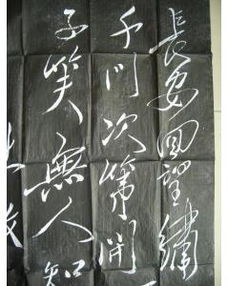 長安回望繡
千門次第開
子笑無人知